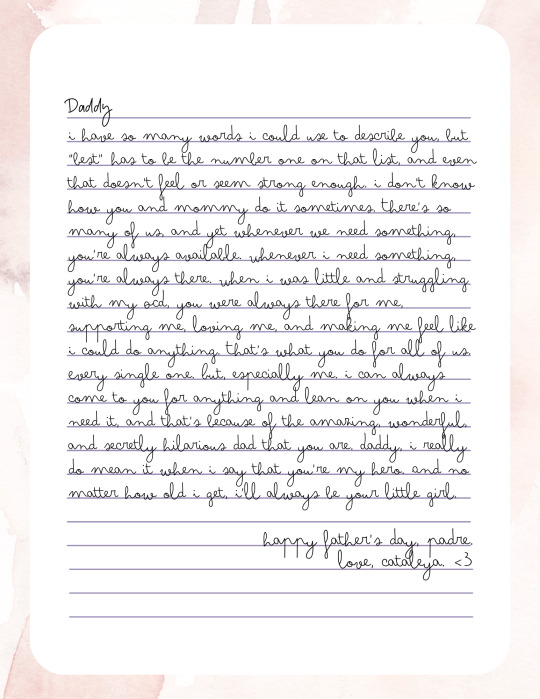 Daddy
i have so many words i could use to describe you, but
"best" has to be the number one on that list, and even
that doesn't feel or seem strong enough. i don't know
how you and mommy do it sometimes. there's so
many of us, and yet whenever we need something,
you're always available. whenever i need something,
you're always there. when i was little and struggling
with my ocd, you were always there for me,
supporting me, loving me, and making me feel like
i could do anything. that's what you do for all of us.
every single one. but, especially me. i can always
come to you for anything and lean on you when i
need it, and that's because of the amazing, wonderful,
and secretly hilarious dad that you are. daddy, i really
do mean it when i say that you're my hero. and no
matter how old i get, i'll always be your little girl.
happy father's day, padre.
love, cataleya. <3